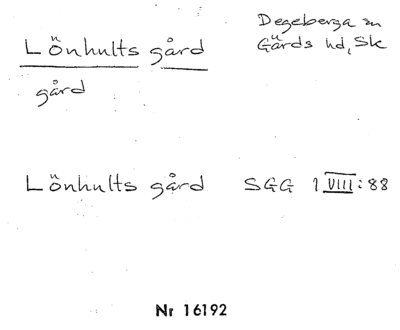 Lönhults gård
Degeberga sn
Gärds hd, Sk
gård
Lönhults gård SGG 1 VIII: 88
Nr 16192